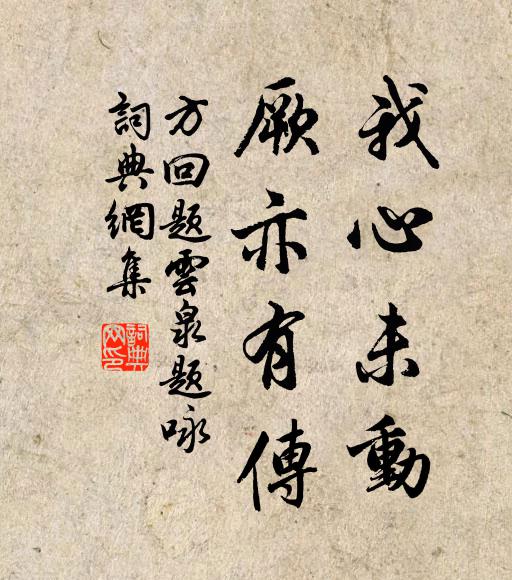 我心未動
厥亦有傳
方回題雲泉題咏
詞典網集
詞典网印